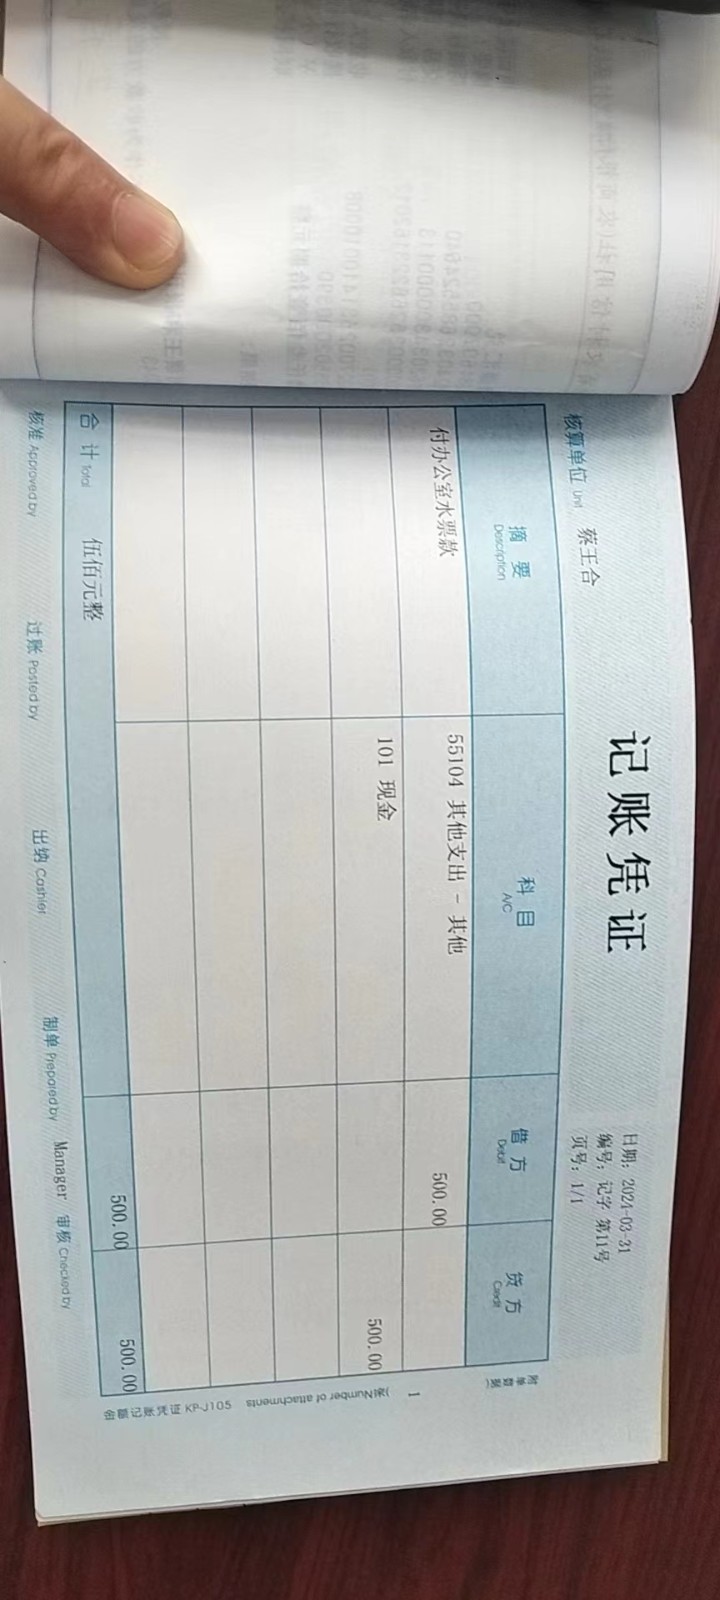 记账凭证
日期: 2024-03-31
编号: 记字 第11号
页号: 1/1
核算单位 Unit 蔡王合
摘要 Description 科目 A/C 借方 Debit 贷方 Credit
付办公室水票款 55104 其他支出 - 其他 500.00
101 现金 500.00
合计 Total 伍佰元整 500.00 500.00
附单据数 1 张(Number of attachments)
金额记账凭证 KP-J105
核准 Approved by 过账 Posted by 出纳 Cashier 制单 Prepared by Manager 审核 Checked by